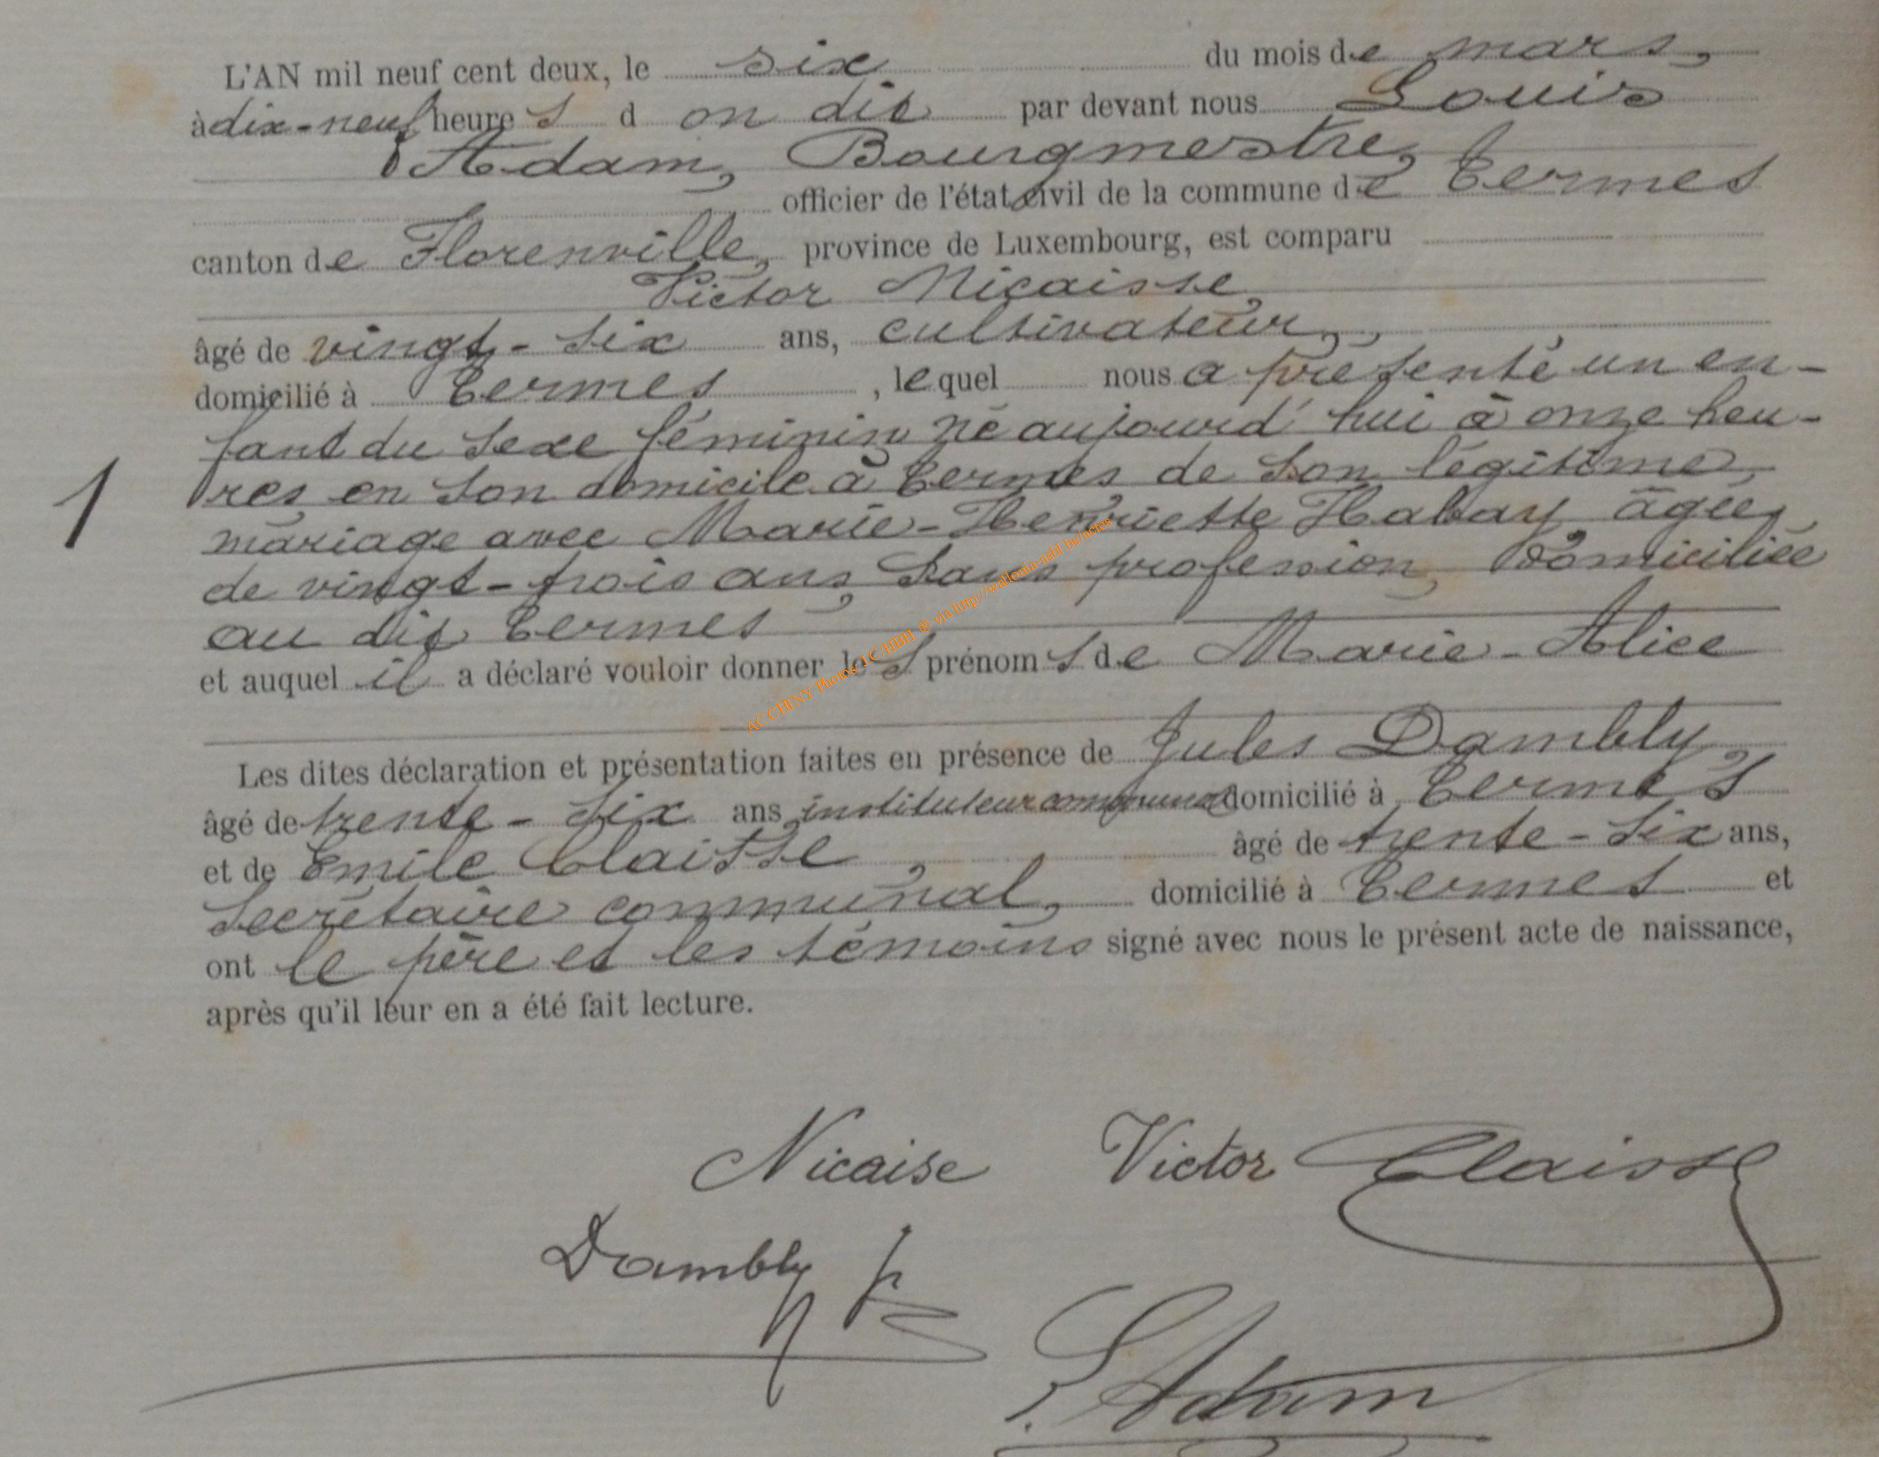 L'AN mil neuf cent deux, le six du mois de mars,
à dix-neuf heures d on dit par devant nous Louis
Adam, Bourgmestre,
officier de l'état civil de la commune de Termes
canton de Florenville, province de Luxembourg, est comparu
Victor Nicaisse,
âgé de vingt-six ans, cultivateur,
domicilié à Termes, lequel nous a présenté un en-
fant du sexe féminin né aujourd'hui à onze heu-
res en son domicile à Termes de son légitime
mariage avec Marie-Henriette Habay âgée,
de vingt-trois ans, sans profession, domiciliée
au dit Termes
et auquel il a déclaré vouloir donner les prénoms de Marie-Alice
Les dites déclaration et présentation faites en présence de Jules Dambly,
âgé de trente-six ans instituteur communal domicilié à Termes
et de Emile Claisse, âgé de trente-six ans,
secrétaire communal, domicilié à Termes et
ont le père et les témoins signé avec nous le présent acte de naissance,
après qu'il leur en a été fait lecture.
1
AC CHINY Photos
Nicaise Victor Claisse
Dambly J
L. Adam